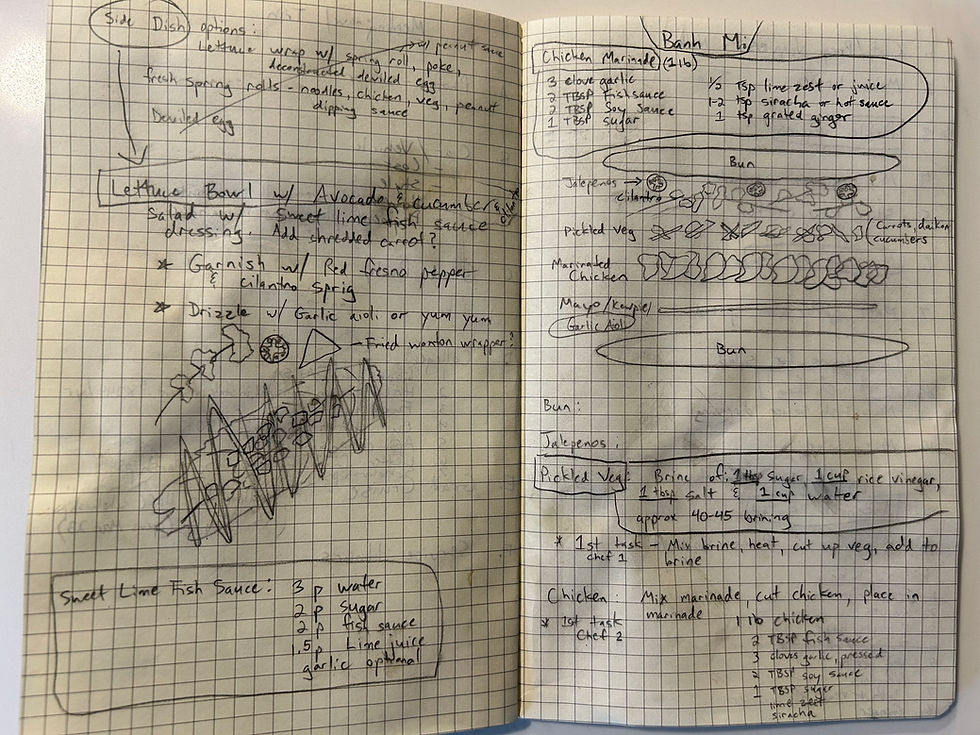 Side Dish options:
Lettuce wrap w/ spring roll, poke, w/ peanut sauce
deconstructed deviled egg
fresh spring rolls - noodles, chicken, veg, peanut
dipping sauce
Deviled egg
Lettuce Bowl w/ Avocado & cucumber &
Salad w/ Sweet lime fish sauce
dressing. Add shredded carrot?
* Garnish w/ Red fresno pepper
& cilantro sprig
* Drizzle w/ Garlic aioli or yum yum
- Fried wonton wrapper?
Sweet Lime Fish Sauce: 3 p water
2 p sugar
2 p fish sauce
1.5 p Lime juice
garlic optional
Banh Mi
Chicken Marinade (1 lb)
3 clove garlic
2 TBSP fish sauce
2 TBSP Soy Sauce
1 TBSP sugar
1/2 Tsp lime zest or juice
1-2 tsp siracha or hot sauce
1 tsp grated ginger
Bun
Jalepenos
cilantro
Pickled Veg
(Carrots, daikon,
cucumbers
Marinated
Chicken
Mayo/Kewpie/
Garlic Aioli
Bun
Bun:
Jalepenos:
Pickled Veg: Brine of: 1 tbsp sugar 1 cup rice vinegar,
1 tbsp salt & 1 cup water
approx 40-45 brining
* 1st task - Mix brine, heat, cut up veg, add to
chef 1 brine
Chicken: Mix marinade, cut chicken, place in
marinade
* 1st task
Chef 2
1 lb chicken
2 TBSP fish sauce
3 cloves garlic, pressed
2 TBSP soy sauce
1 TBSP sugar
lime zest
siracha